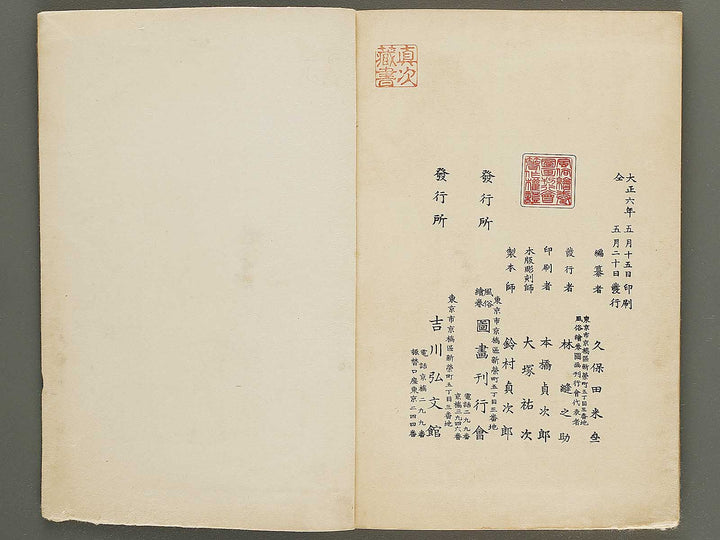 真次
藏書
大正六年五月十五日印刷
全 五月二十日發行
編纂者 久保田米
東京市京橋區新榮町五丁目三番地
風俗繪卷圖畫刊行會代表者
發行者 林縫之助
印刷者 本橋貞次郎
木版彫刻師 大塚祐次
製本師 鈴村貞次郎
東京市京橋區新榮町五丁目三番地
發行所 風俗繪卷圖畫刊行會
電話二九九番
京橋三九四六番
東京市京橋區新榮町五丁目三番地
發行所 吉川弘文館
電話京橋二九九番
振替口座東京二四四番